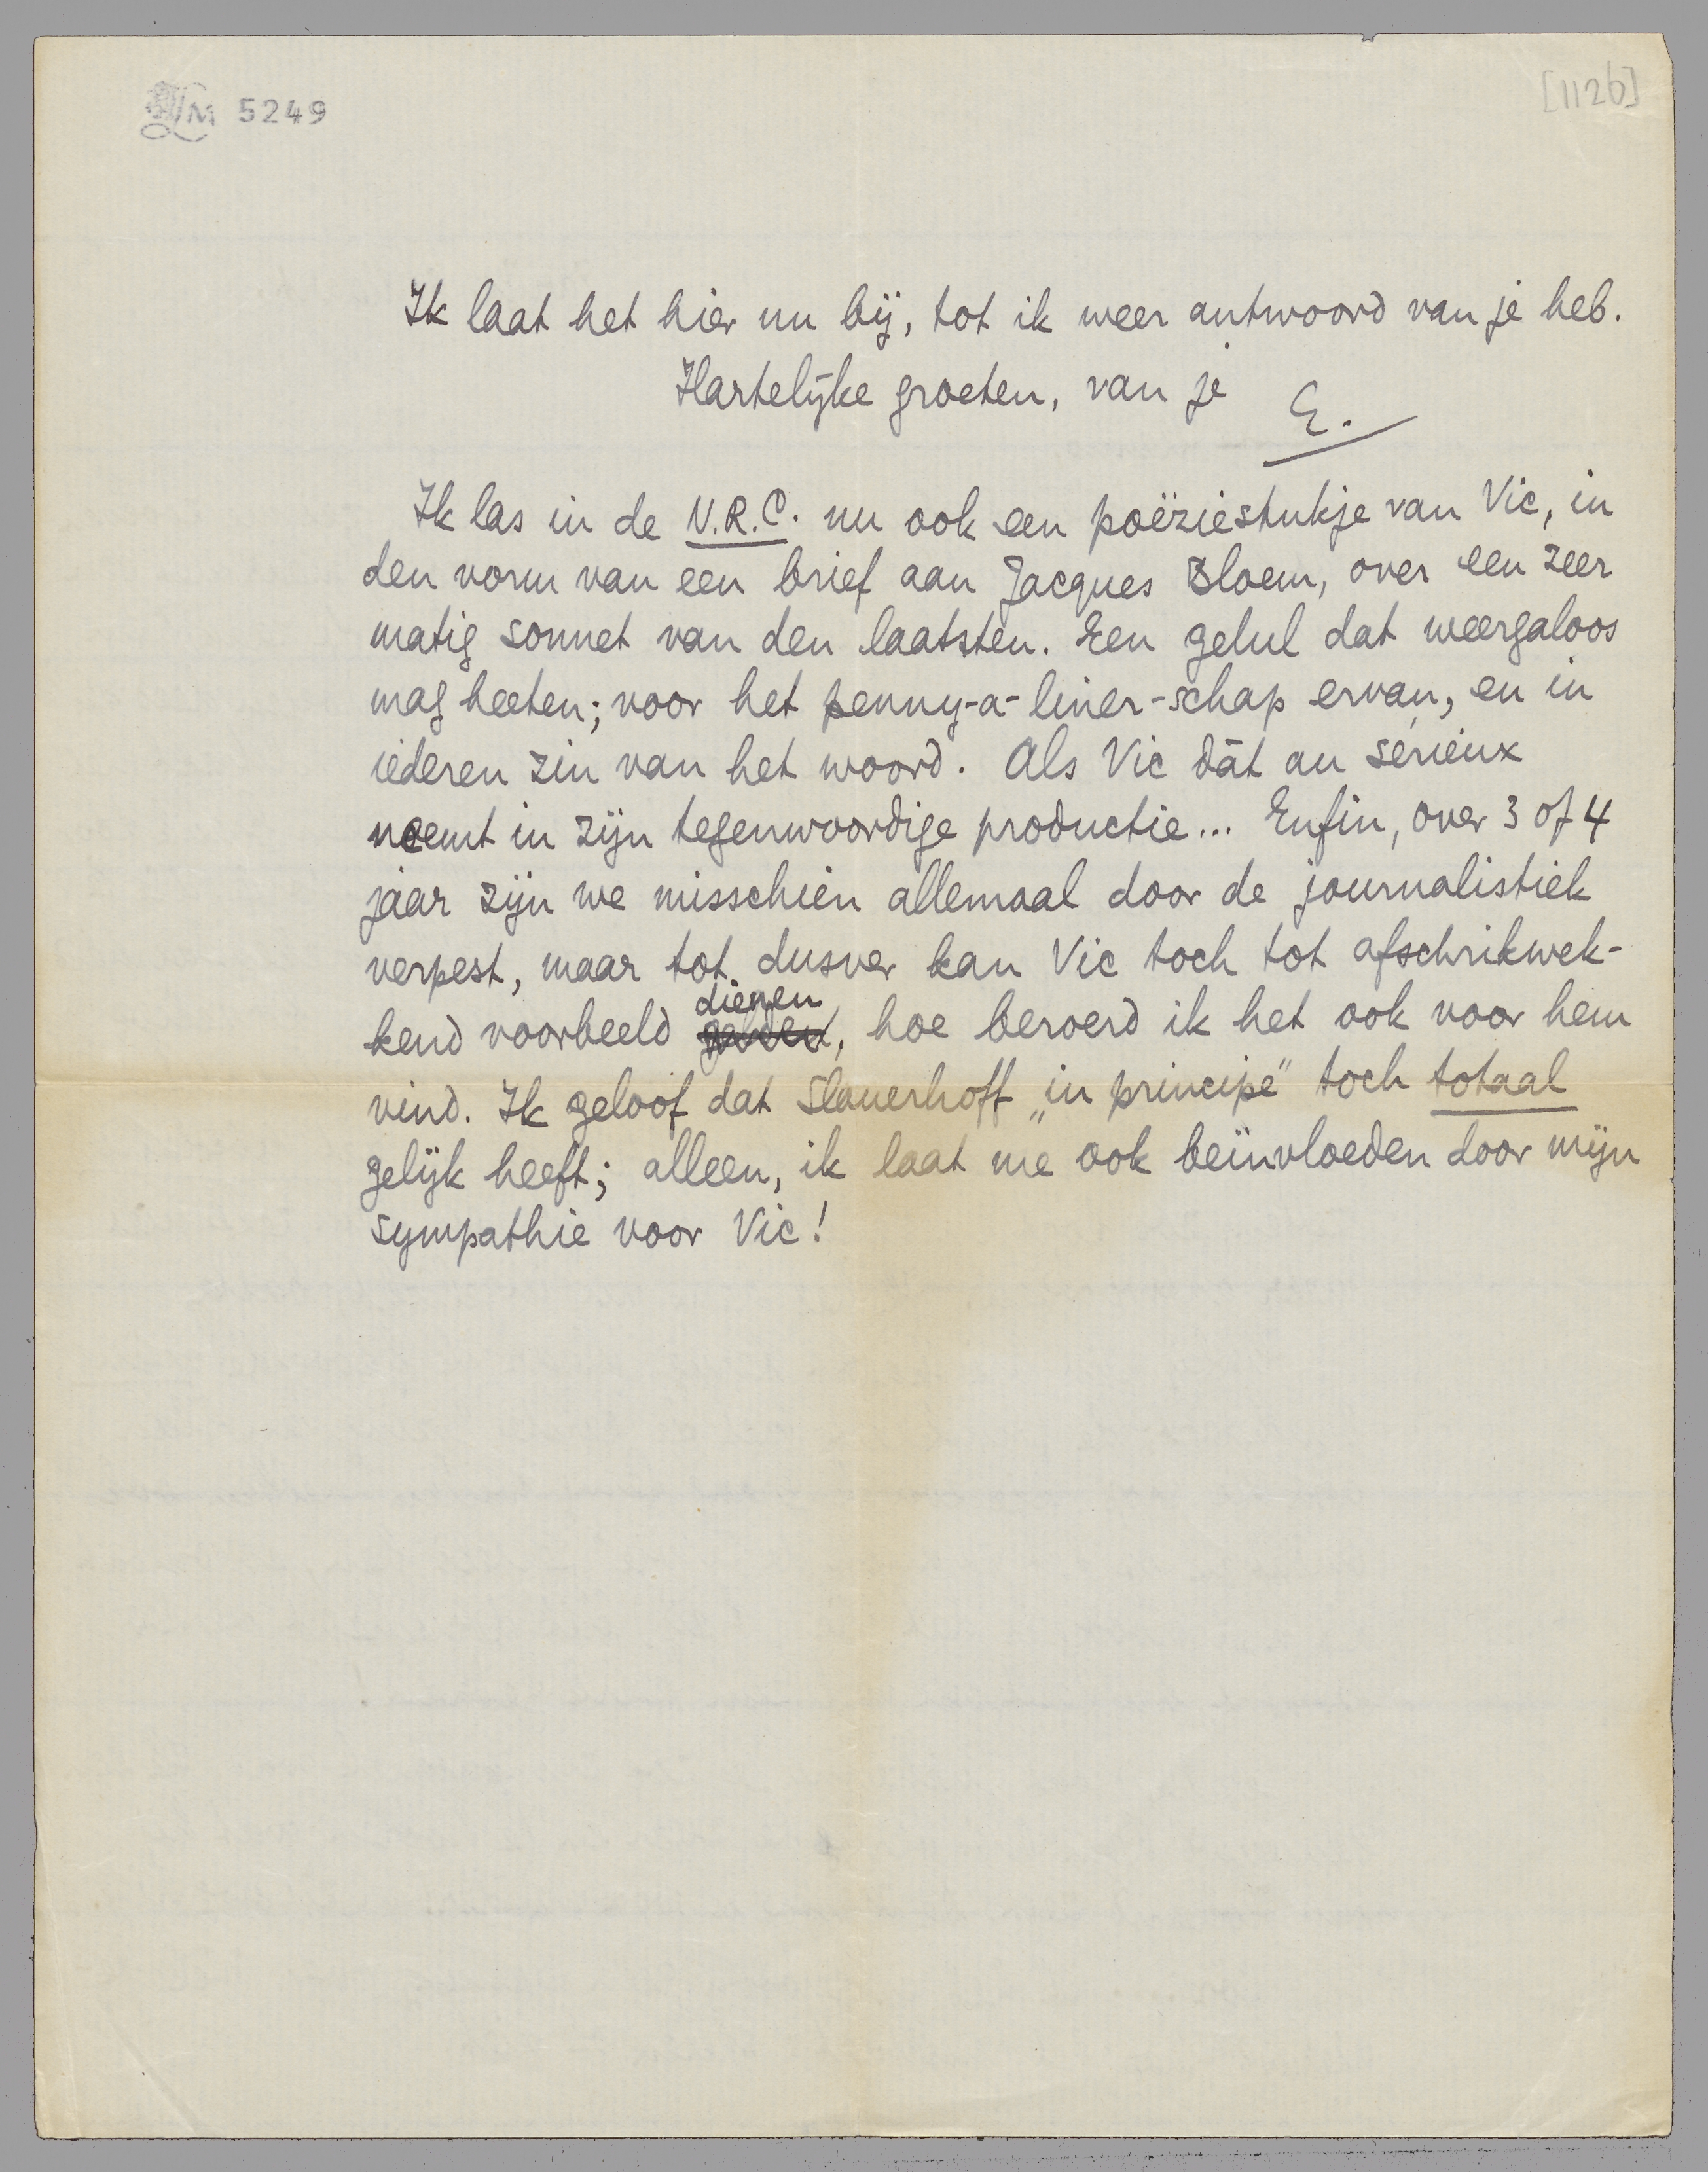 LM 5249
[1126]
Ik laat het hier nu bij, tot ik weer antwoord van je heb.
Hartelijke groeten, van je E.
Ik las in de N.R.C. nu ook een poëziestukje van Vic, in
den vorm van een brief aan Jacques Bloem, over een zeer
matig sonnet van den laatsten. Een gelul dat weergaloos
mag heeten; voor het penny-a-liner-schap ervan, en in
iederen zin van het woord. Als Vic dàt au sérieux
neemt in zijn tegenwoordige productie... Enfin, over 3 of 4
jaar zijn we misschien allemaal door de journalistiek
verpest, maar tot dusver kan Vic toch tot afschrikwek-
kend voorbeeld dienen, hoe beroerd ik het ook voor hem
vind. Ik geloof dat Slauerhoff „in principe" toch totaal
gelijk heeft; alleen, ik laat me ook beïnvloeden door mijn
sympathie voor Vic!